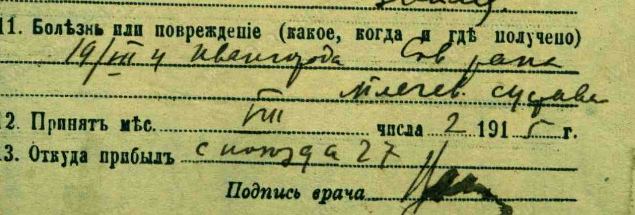 11. Болѣзнь или поврежденіе (какое, когда и гдѣ получено)
19/VII у Ивангорода рана
плечев. сустава
12. Принятъ мѣс. VIII числа 2 1915 г.
13. Откуда прибылъ с поезда 27
Подпись врача